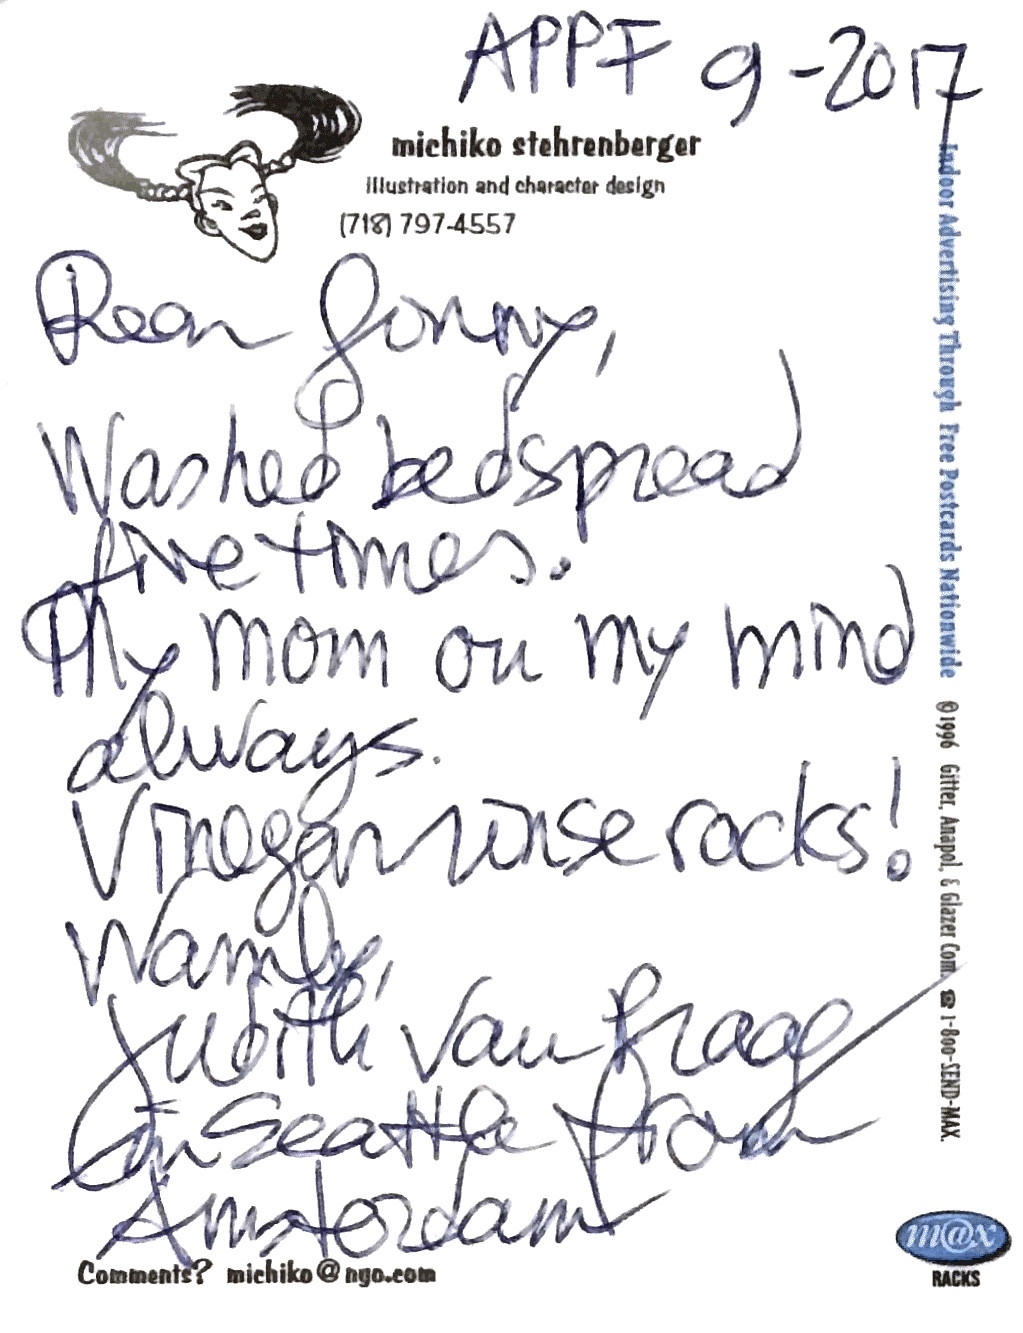 APPF 9-2017
michiko stehrenberger
illustration and character design
(718) 797-4557
Dear Jonny,
Washed bedspread
five times.
My mom on my mind
always.
Vinegar rinse rocks!
Warmly,
Judith van Praag
in Seattle from
Amsterdam
Comments? michiko@ngo.com
Indoor Advertising Through Free Postcards Nationwide ©1996 Gitter, Anapol, & Glazer Com. ☎ 1-800-SEND-MAX
m@x
RACKS